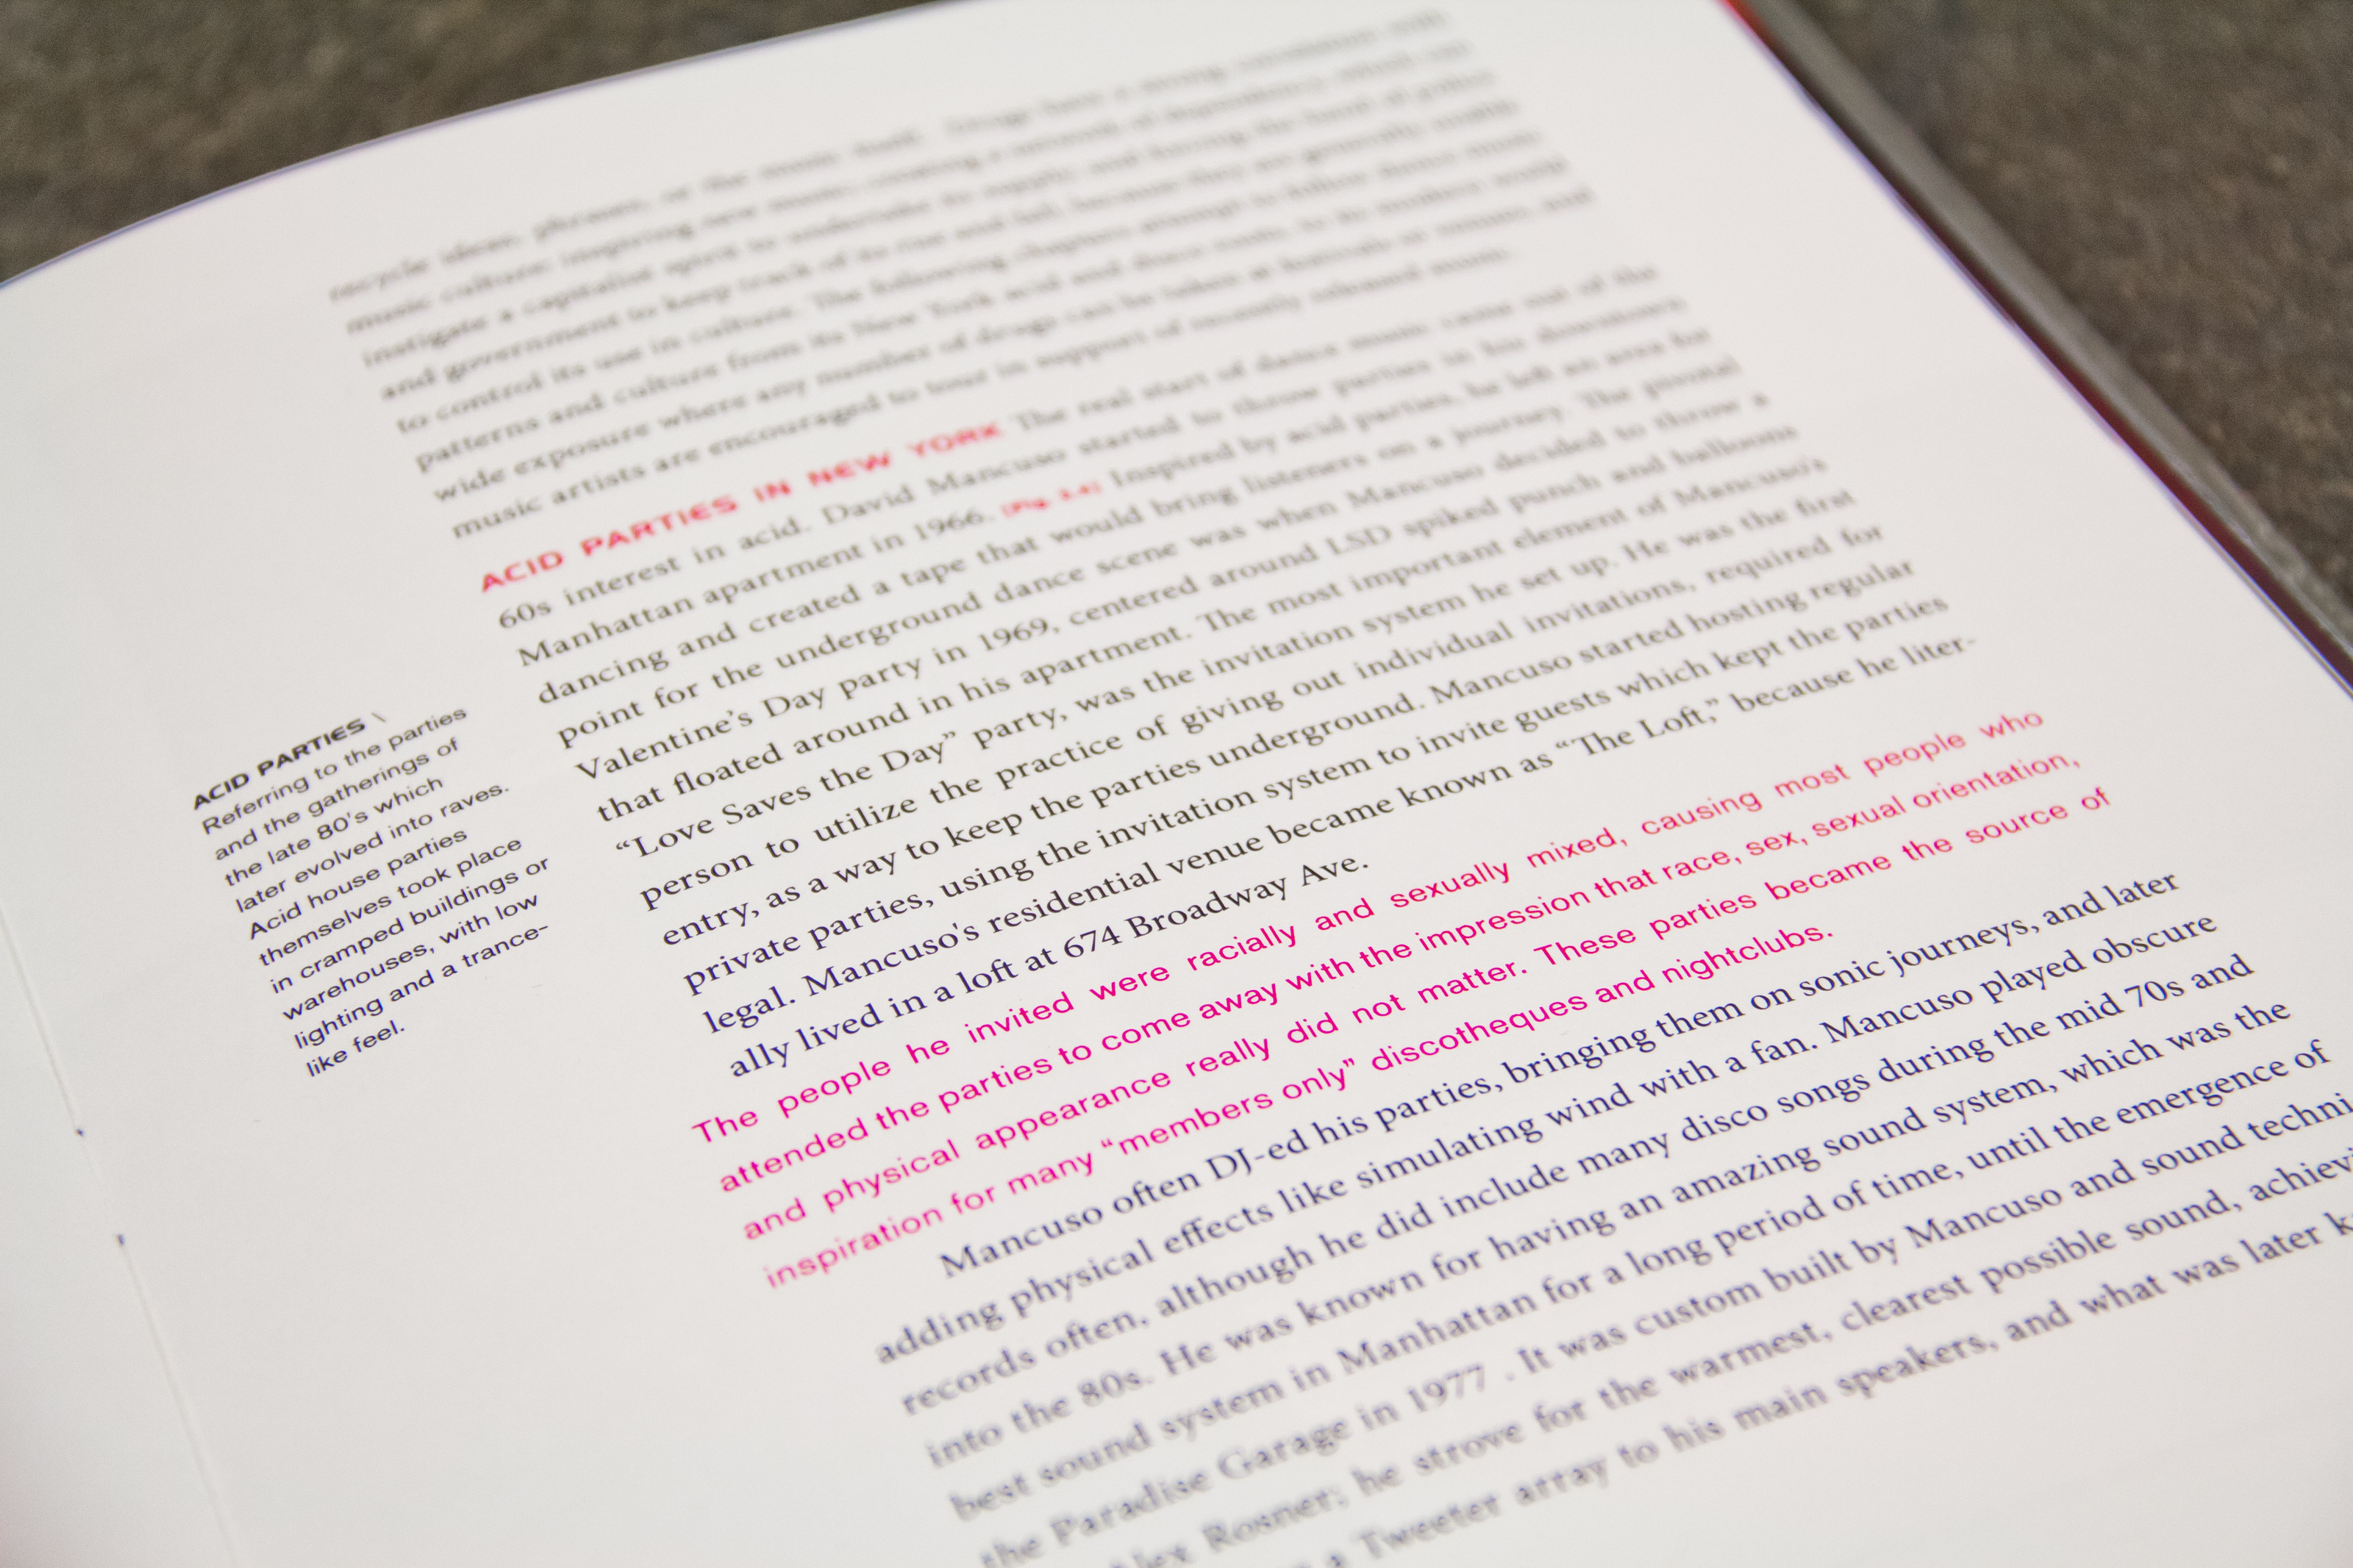 recycle ideas, phrases, or the music itself. Drugs have a strong
music culture: inspiring new music, creating a network of dependency which can
instigate a capitalist spirit to undertake its supply; and forcing the hand of police
and government to keep track of its rise and fall, because they are generally unable
to control its use in culture. The following chapters attempt to follow dance music
patterns and culture from its New York acid and disco roots, to its modern world
wide exposure where any number of drugs can be taken at festivals or venues, and
music artists are encouraged to tour in support of recently released music.
ACID PARTIES IN NEW YORK The real start of dance music came out of the
60s interest in acid. David Mancuso started to throw parties in his downtown,
Manhattan apartment in 1966. Inspired by acid parties, he left an area for
dancing and created a tape that would bring listeners on a journey. The pivotal
point for the underground dance scene was when Mancuso decided to throw a
Valentine's Day party in 1969, centered around LSD spiked punch and balloons
that floated around in his apartment. The most important element of Mancuso's
“Love Saves the Day” party, was the invitation system he set up. He was the first
person to utilize the practice of giving out individual invitations, required for
entry, as a way to keep the parties underground. Mancuso started hosting regular
private parties, using the invitation system to invite guests which kept the parties
legal. Mancuso's residential venue became known as “The Loft,” because he liter-
ally lived in a loft at 674 Broadway Ave.
The people he invited were racially and sexually mixed, causing most people who
attended the parties to come away with the impression that race, sex, sexual orientation,
and physical appearance really did not matter. These parties became the source of
inspiration for many “members only” discotheques and nightclubs.
Mancuso often DJ-ed his parties, bringing them on sonic journeys, and later
adding physical effects like simulating wind with a fan. Mancuso played obscure
records often, although he did include many disco songs during the mid 70s and
into the 80s. He was known for having an amazing sound system, which was the
best sound system in Manhattan for a long period of time, until the emergence of
the Paradise Garage in 1977 . It was custom built by Mancuso and sound techni
Alex Rosner; he strove for the warmest, clearest possible sound, achievi
a Tweeter array to his main speakers, and what was later k
ACID PARTIES \
Referring to the parties
and the gatherings of
the late 80's which
later evolved into raves.
Acid house parties
themselves took place
in cramped buildings or
warehouses, with low
lighting and a trance-
like feel.